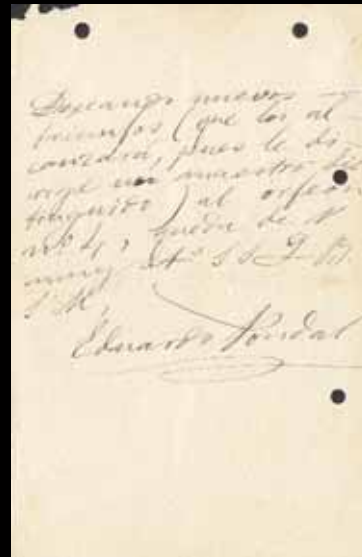 Deseando nuevos
triunfos (que los al
canzará, pues le di
rige un maestro dis
tinguido) al orfeón
nº 4, queda de V.
muy atº s s q. b.
s. m,
Eduardo Pondal